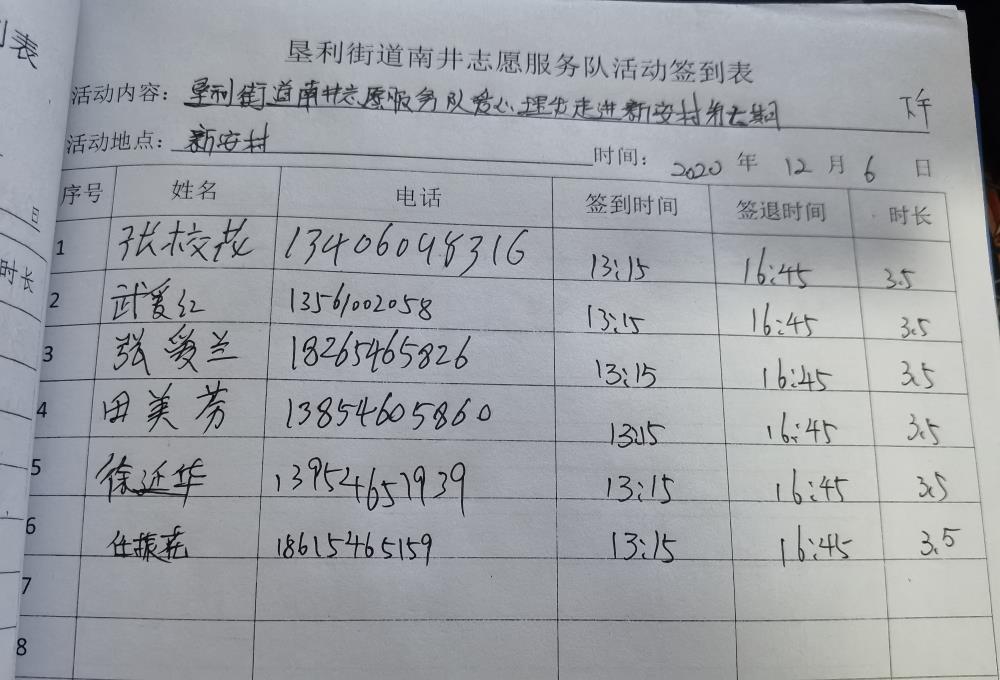 到表
旦
时长
垦利街道南井志愿服务队活动签到表
活动内容：垦利街道南井志愿服务队爱心理发走进新安村第七期 下午
活动地点：新安村 时间：2020年12月6日
序号 姓名 电话 签到时间 签退时间 时长
1 张校花 13406048316 13:15 16:45 3.5
2 武爱红 13561002058 13:15 16:45 3.5
3 张爱兰 18265465826 13:15 16:45 3.5
4 田美芳 13854605860 13:15 16:45 3.5
5 徐延华 13954657939 13:15 16:45 3.5
6 任振花 18615465159 13:15 16:45 3.5
7
8